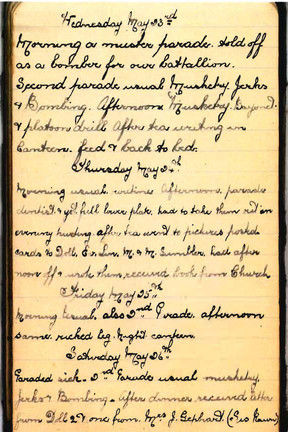 Wednesday May 23rd
Morning a muster parade. told off
as a bomber for our battallion.
Second parade usual Musketry. Jerks
& Bombing. Afternoon Musketry. Bayonet
& platoon drill After tea writing in
Canteen. feed & back to bed.
Thursday May 24th
Morning usual routine Afternoon. parade
dentist & get full lower plate. had to take them
evening writing. after tea went to pictures posted
cards to Doll, & M. Had after
noon off & received book from Church
Friday May 25th
Morning Usual, also 2nd Parade. afternoon
same. ricked leg. Night canteen.
Saturday May 26th
Paraded sick. 2nd Parade usual musketry
Jerks & Bombing. After dinner received letter
from Doll & one from. Mrs J. Gephard.